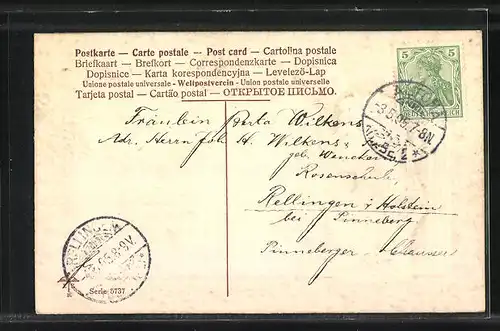 Postkarte — Carte postale — Post card — Cartolina postale
Briefkaart — Brefkort — Correspondenzkarte — Dopisnica
Dopisnice — Karta korespondencyjna — Levelező-Lap
Unione postale universale - Weltpostverein - Union postale universelle
Tarjeta postal — Cartão postal — ОТКРЫТОЕ ПИСЬМО.
5 5
Fräulein Berta Wilkens
Adr. Herrn Joh. H. Wilkens
geb.
Rosenschule,
Rellingen i/ Holstein
bei Pinneberg
Pinneberger Chaussee
Serie 5737